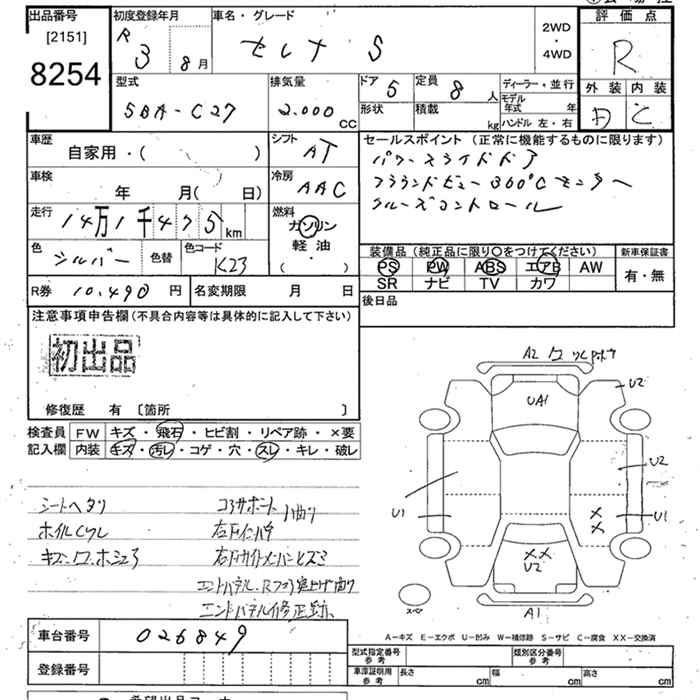 出品番号
[2151]
8254
初度登録年月
R 3 8月
車名・グレード
セレナ S
2WD
・
4WD
評価点
R
外装 内装
D C
型式
5BA-C27
排気量
2,000cc
ドア 5
定員 8人
形状
積載 kg
ディーラー・並行
モデル年式 年
ハンドル 左・右
車歴
自家用・( )
シフト
AT
車検
年 月( 日)
冷房
AAC
走行
14万1千475km
燃料
ガソリン
軽油
( ・ )
色
シルバー
色替
色コード
K23
R券 10,490円
名変期限 月 日
セールスポイント (正常に機能するものに限ります)
パワースライドドア
アラウンドビュー360°Cモニター
クルーズコントロール
装備品 (純正品に限り○をつけてください)
PS PW ABS エアB AW
SR ナビ TV カワ
新車保証書
有・無
後日品
注意事項申告欄(不具合内容等は具体的に記入して下さい)
初出品
修復歴 有 [箇所 ]
検査員記入欄
FW キズ・飛石・ヒビ割・リペア跡・×要
内装 キズ・汚レ・コゲ・穴・スレ・キレ・破レ
シートヘタリ
コアサポート 曲り
右リヤ
エンドパネル
エンドパネル修正跡
車台番号 026849
登録番号
A2
UA1
U2
U2
U1
U1
××
××
U2
A1
スペア
A−キズ E−エクボ U−凹み W−補修跡 S−サビ C−腐食 XX−交換済
型式指定番号 参考
類別区分番号 参考
車庫証明用 参考 長さ cm 幅 cm 高さ cm